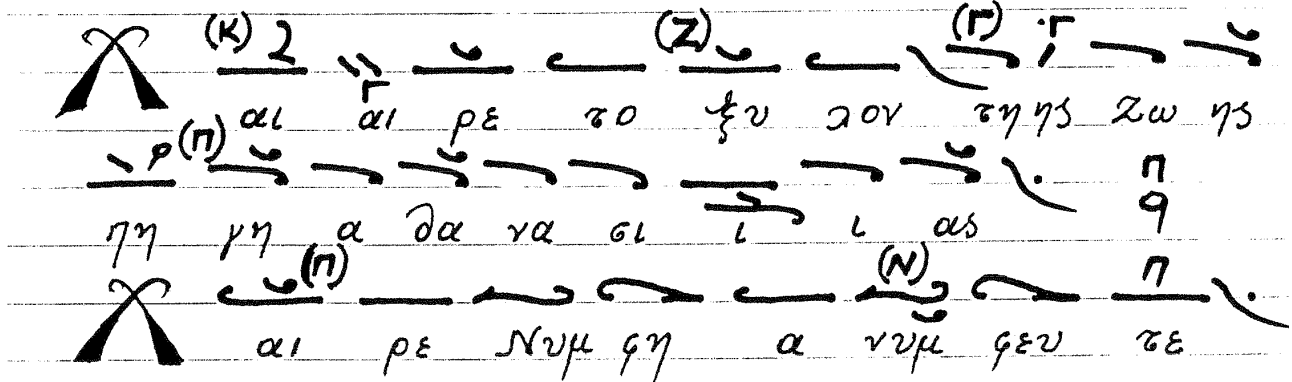 (Κ) (Ζ) (Γ) Γ
Χ αι αι ρε το ξυ λον τη ης ζω ης
(Π) Π
πη γη α θα να σι ι ι ας
(Π) (Ν) Π
Χ αι ρε Νυμ φη α νυμ φευ τε